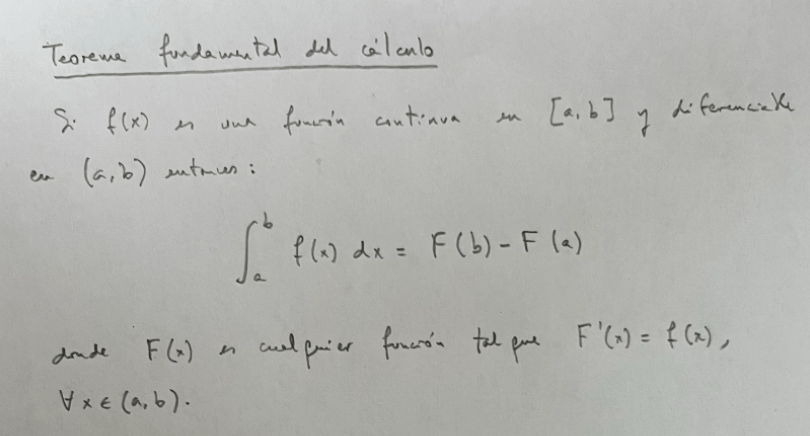 Teorema fundamental del cálculo
Si f(x) es una función continua en [a,b] y diferenciable
en (a,b) entonces:
∫_a^b f(x) dx = F(b) - F(a)
donde F(x) es cualquier función tal que F'(x) = f(x),
∀ x ∈ (a,b).